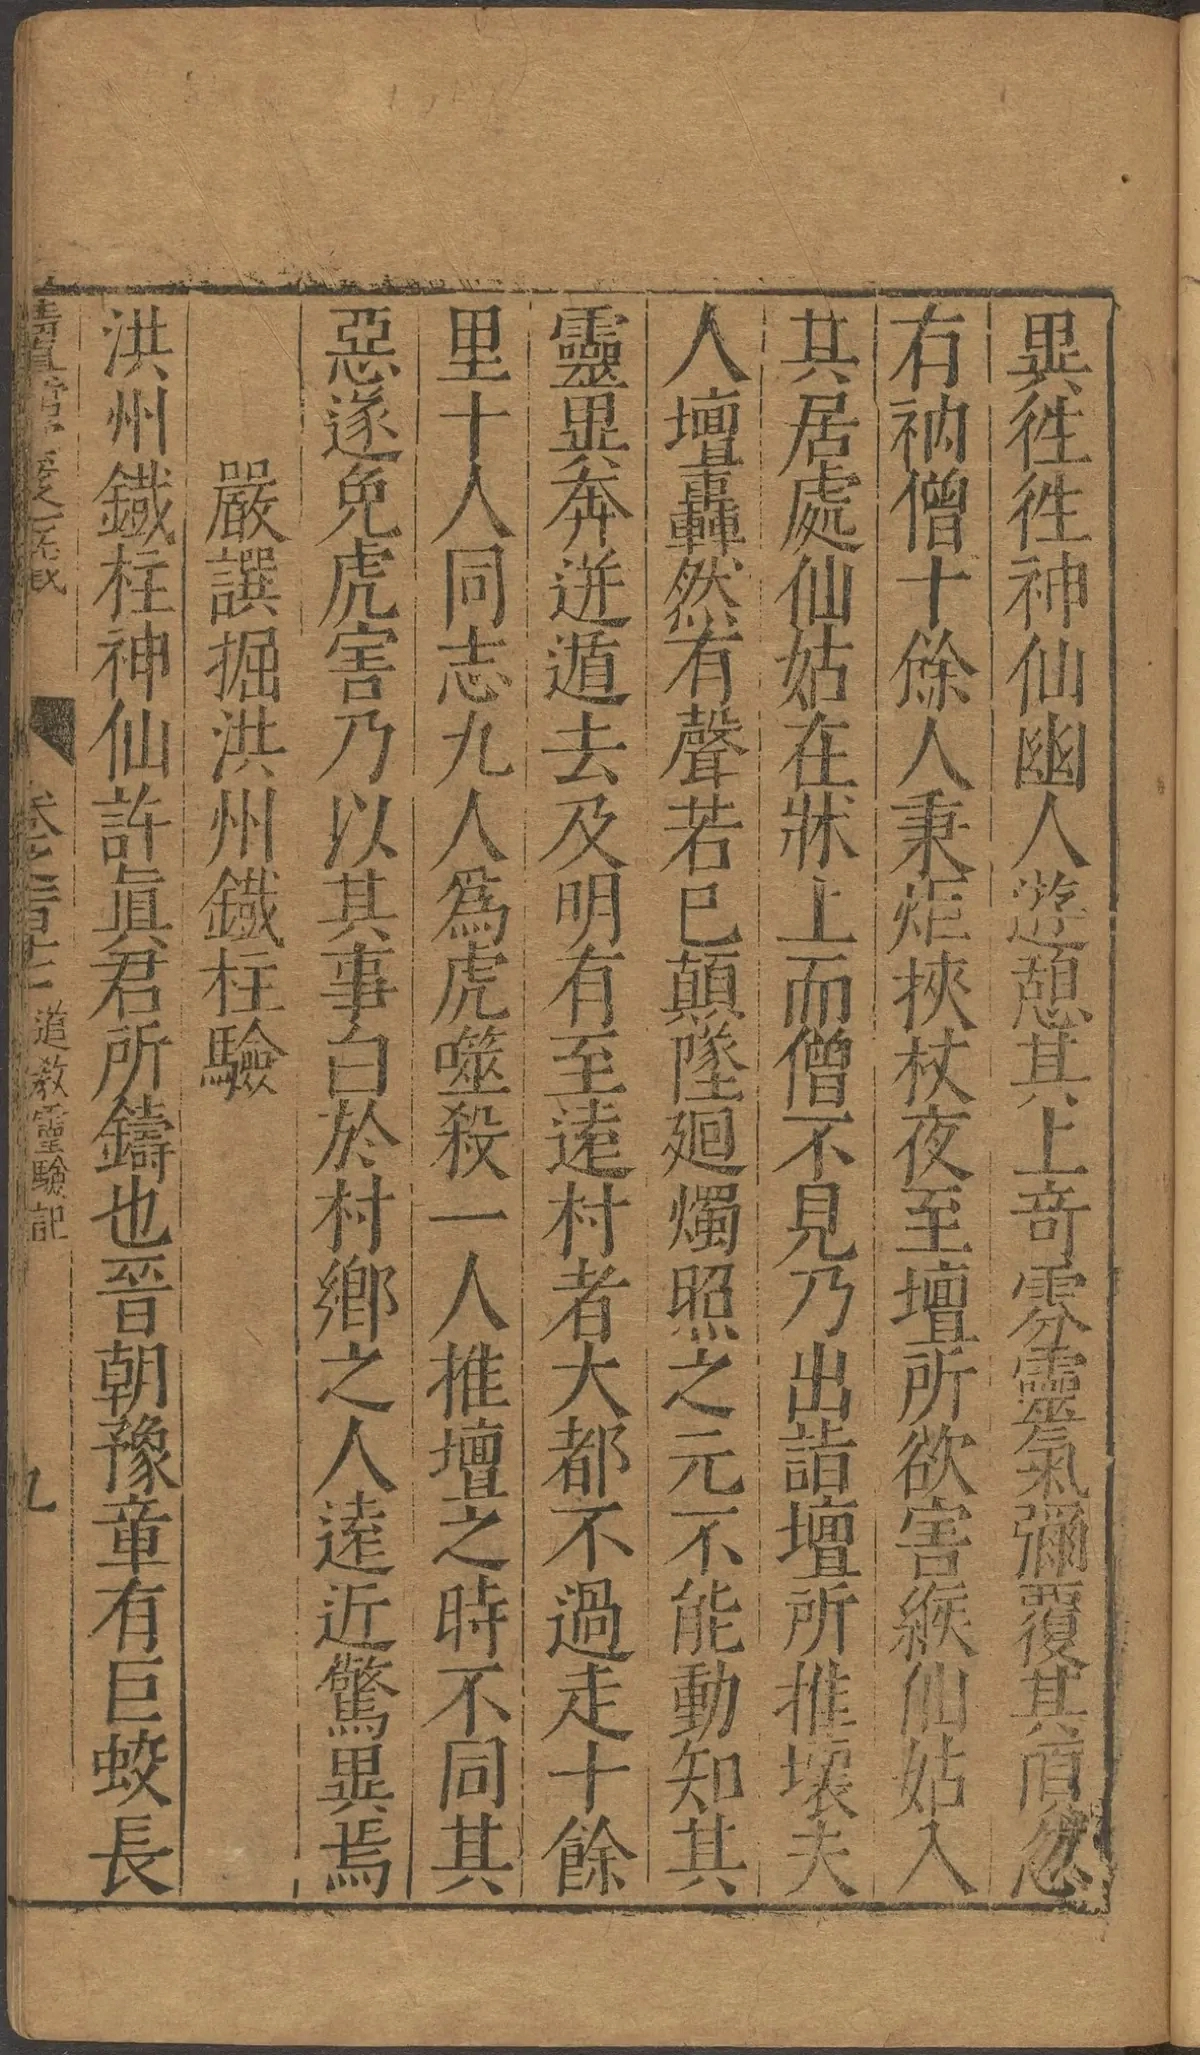 異徃徃神仙幽人遊憩其上竒雰靈氣彌覆其頂忽
有衲僧十餘人秉炬挾杖夜至壇所欲害緱仙姑入
其居處仙姑在牀上而僧不見乃出詣壇所推壞夫
人壇轟然有聲若已顛墜廻燭照之元不能動知其
靈異奔迸遁去及明有至逺村者大都不過走十餘
里十人同志九人為虎噬殺一人推壇之時不同其
惡遂免虎害乃以其事白於村鄉之人逺近驚異焉
嚴譔掘洪州鐡柱驗
洪州鐡柱神仙許真君所鑄也晉朝豫章有巨蛟長
道教靈驗記
九